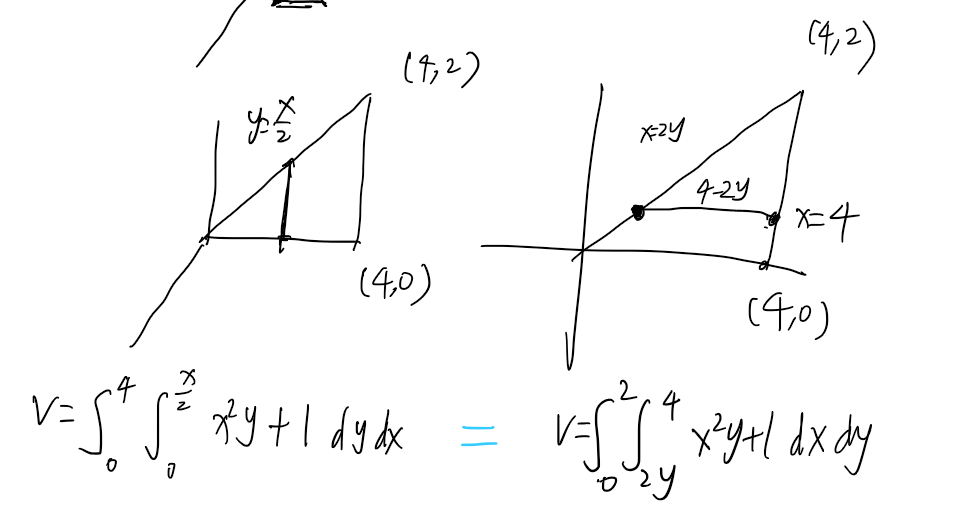 (4,2)
(4,2)
y=x/2
x=2y
4-2y
x=4
(4,0)
(4,0)
V=∫₀⁴ ∫₀^(x/2) x²y+1 dy dx = V=∫₀² ∫_(2y)^4 x²y+1 dx dy